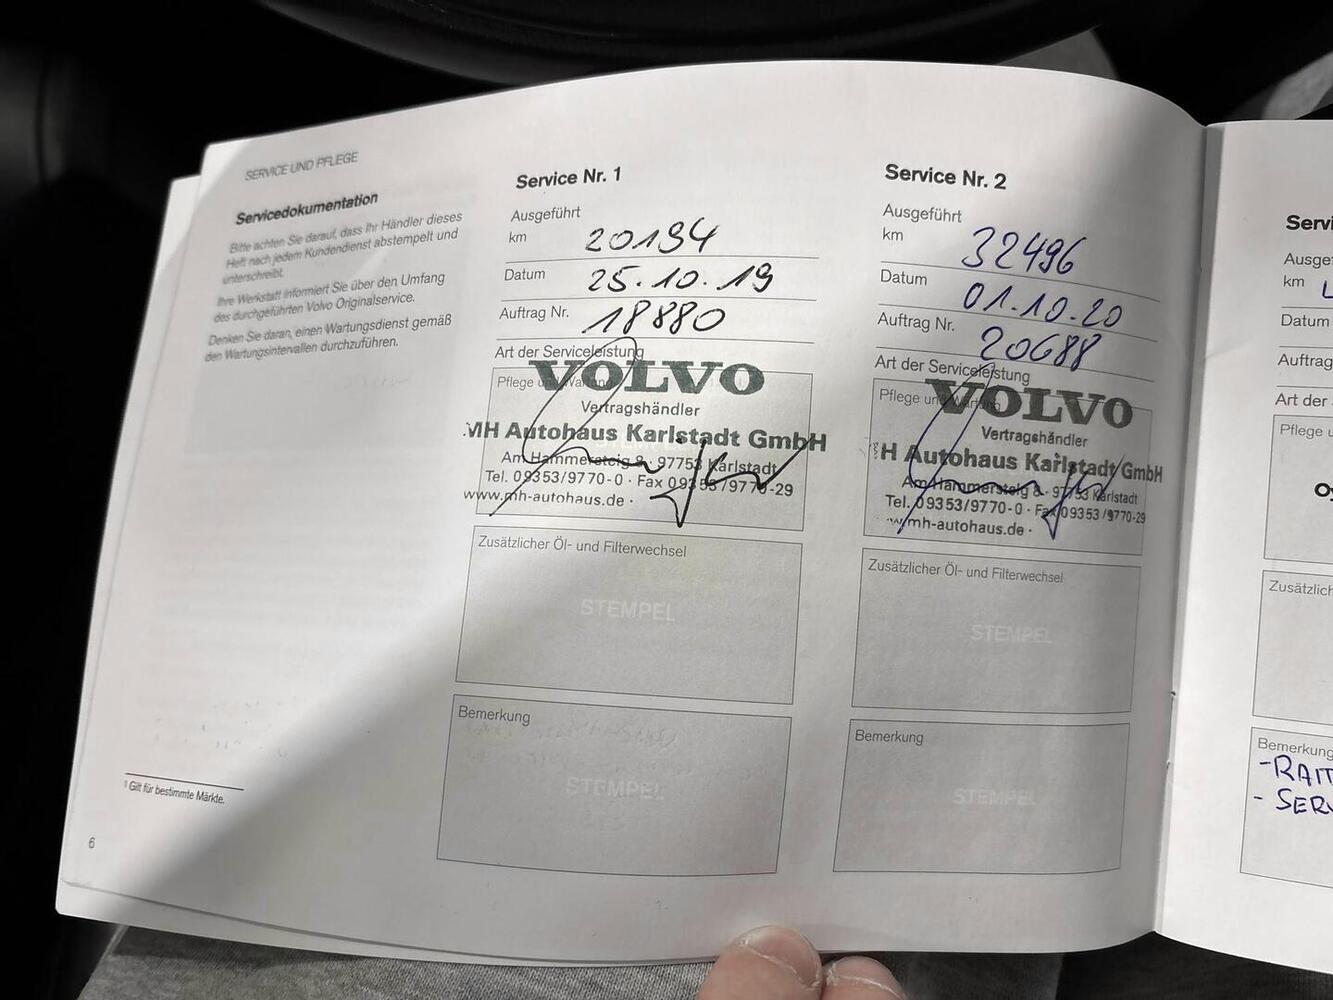 SERVICE UND PFLEGE
Servicedokumentation
Bitte achten Sie darauf, dass Ihr Händler dieses
Heft nach jedem Kundendienst abstempelt und
unterschreibt.
Ihre Werkstatt informiert Sie über den Umfang
des durchgeführten Volvo Originalservice.
Denken Sie daran, einen Wartungsdienst gemäß
den Wartungsintervallen durchzuführen.
1 Gilt für bestimmte Märkte.
6
Service Nr. 1
Ausgeführt
km 20194
Datum 25.10.19
Auftrag Nr. 18880
Art der Serviceleistung
Pflege und Wartung
VOLVO
Vertragshändler
MH Autohaus Karlstadt GmbH
Am Hammersteig 8 · 97753 Karlstadt
Tel. 09353/9770-0 · Fax 09353/9770-29
www.mh-autohaus.de ·
Zusätzlicher Öl- und Filterwechsel
STEMPEL
Bemerkung
STEMPEL
Service Nr. 2
Ausgeführt
km 32496
Datum 01.10.20
Auftrag Nr. 20688
Art der Serviceleistung
Pflege und Wartung
VOLVO
Vertragshändler
H Autohaus Karlstadt GmbH
Am Hammersteig 8 · 97753 Karlstadt
Tel. 09353/9770-0 · Fax 09353/9770-29
w.mh-autohaus.de ·
Zusätzlicher Öl- und Filterwechsel
STEMPEL
Bemerkung
STEMPEL
Servi
Ausge
km
Datum
Auftrag
Art der
Pflege u
Zusätzlich
Bemerkung
-RAIT
- SERV